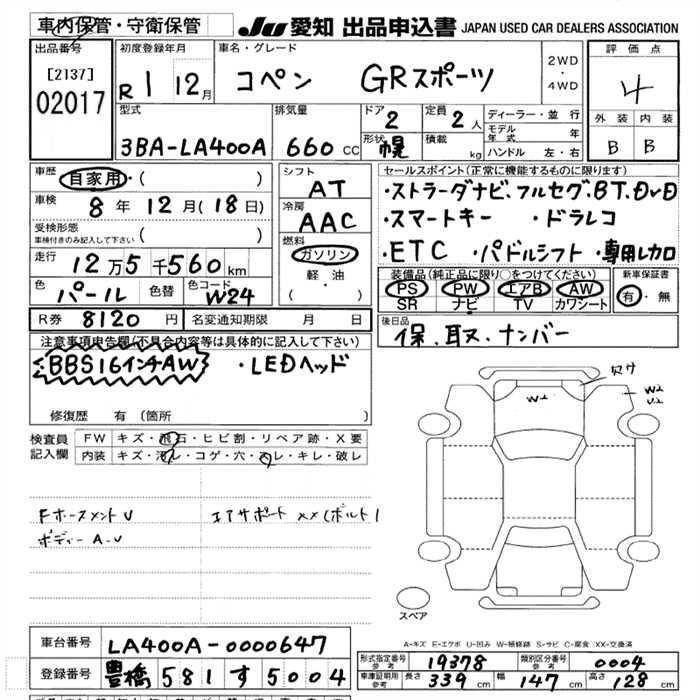 車内保管・守衛保管
JU 愛知 出品申込書 JAPAN USED CAR DEALERS ASSOCIATION
出品番号
[2137]
02017
初度登録年月
R 1 12月
車名・グレード
コペン GRスポーツ
2WD
・
4WD
評価点
4
外装 内装
B B
型式
3BA-LA400A
排気量
660 CC
ドア
2
形状
幌
定員
2人
積載
kg
ディーラー・並行
モデル年式 年
ハンドル 左・右
車歴
自家用・( )
車検
8年 12月(18日)
受検形態
車検付きのみ記入して下さい ( )
走行
12万5千560km
色
パール
色替
色コード
W24
シフト
AT
冷房
AAC
燃料
ガソリン
軽・油
( )
セールスポイント(正常に機能するものに限ります)
・ストラーダナビ、フルセグ、BT、DVD
・スマートキー ・ドラレコ
・ETC ・パドルシフト ・専用レカロ
装備品(純正品に限り○をつけてください)
PS PW エアB AW
SR ナビ TV カワシート
新車保証書
有・無
R券 8120円
名変通知期限 月 日
後日品
保、取、ナンバー
注意事項申告欄(不具合内容等は具体的に記入して下さい)
・BBS16インチAW ・LEDヘッド
修復歴 有(箇所 )
検査員記入欄
FW キズ・飛石・ヒビ割・リペア跡・X要
内装 キズ・汚レ・コゲ・穴・スレ・キレ・破レ
Fホースメント U
ボディー A-U
エアサポート XX(ボルト)
W2
欠け
W2
U2
スペア
A-キズ E-エクボ U-凹み W-補修跡 S-サビ C-腐食 XX-交換済
車台番号 LA400A-0000647
登録番号 豊橋 581 す 5004
形式指定番号
参考
19378
類別区分番号
参考
0004
車庫証明用
参考
長さ 339cm 幅 147cm 高さ 128cm